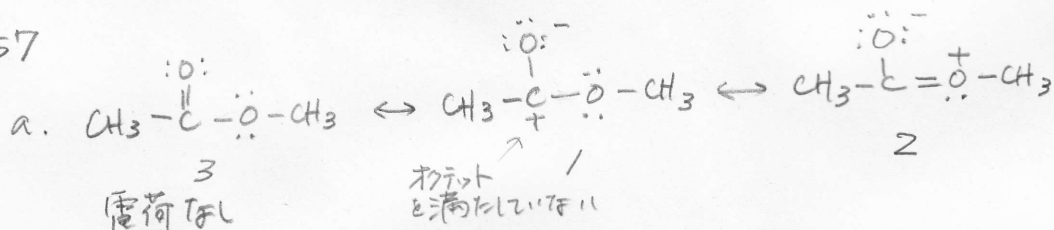 57
a. CH3-C(=O)-O-CH3 ↔ CH3-C+(-O-)-O-CH3 ↔ CH3-C(-O-)=O+-CH3
3 1 2
電荷なし
オクテット
を満たしていない